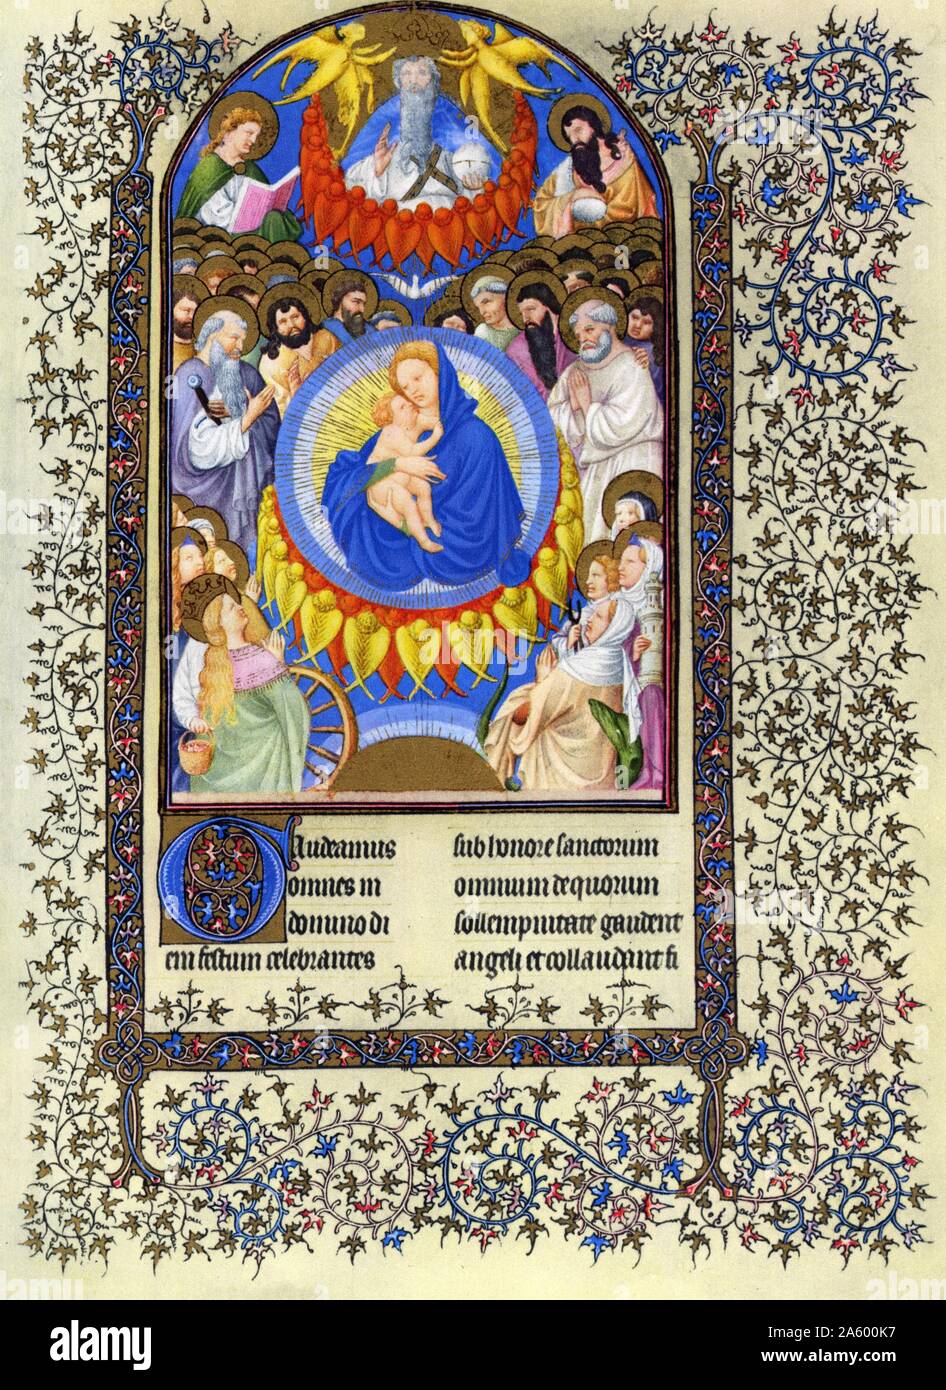 Gaudeamus
omnes in
domino di
em festum celebrantes
sub honore sanctorum
omnium de quorum
sollempnitate gaudent
angeli et collaudant fi
alamy
Image ID: 2A600K7
www.alamy.com